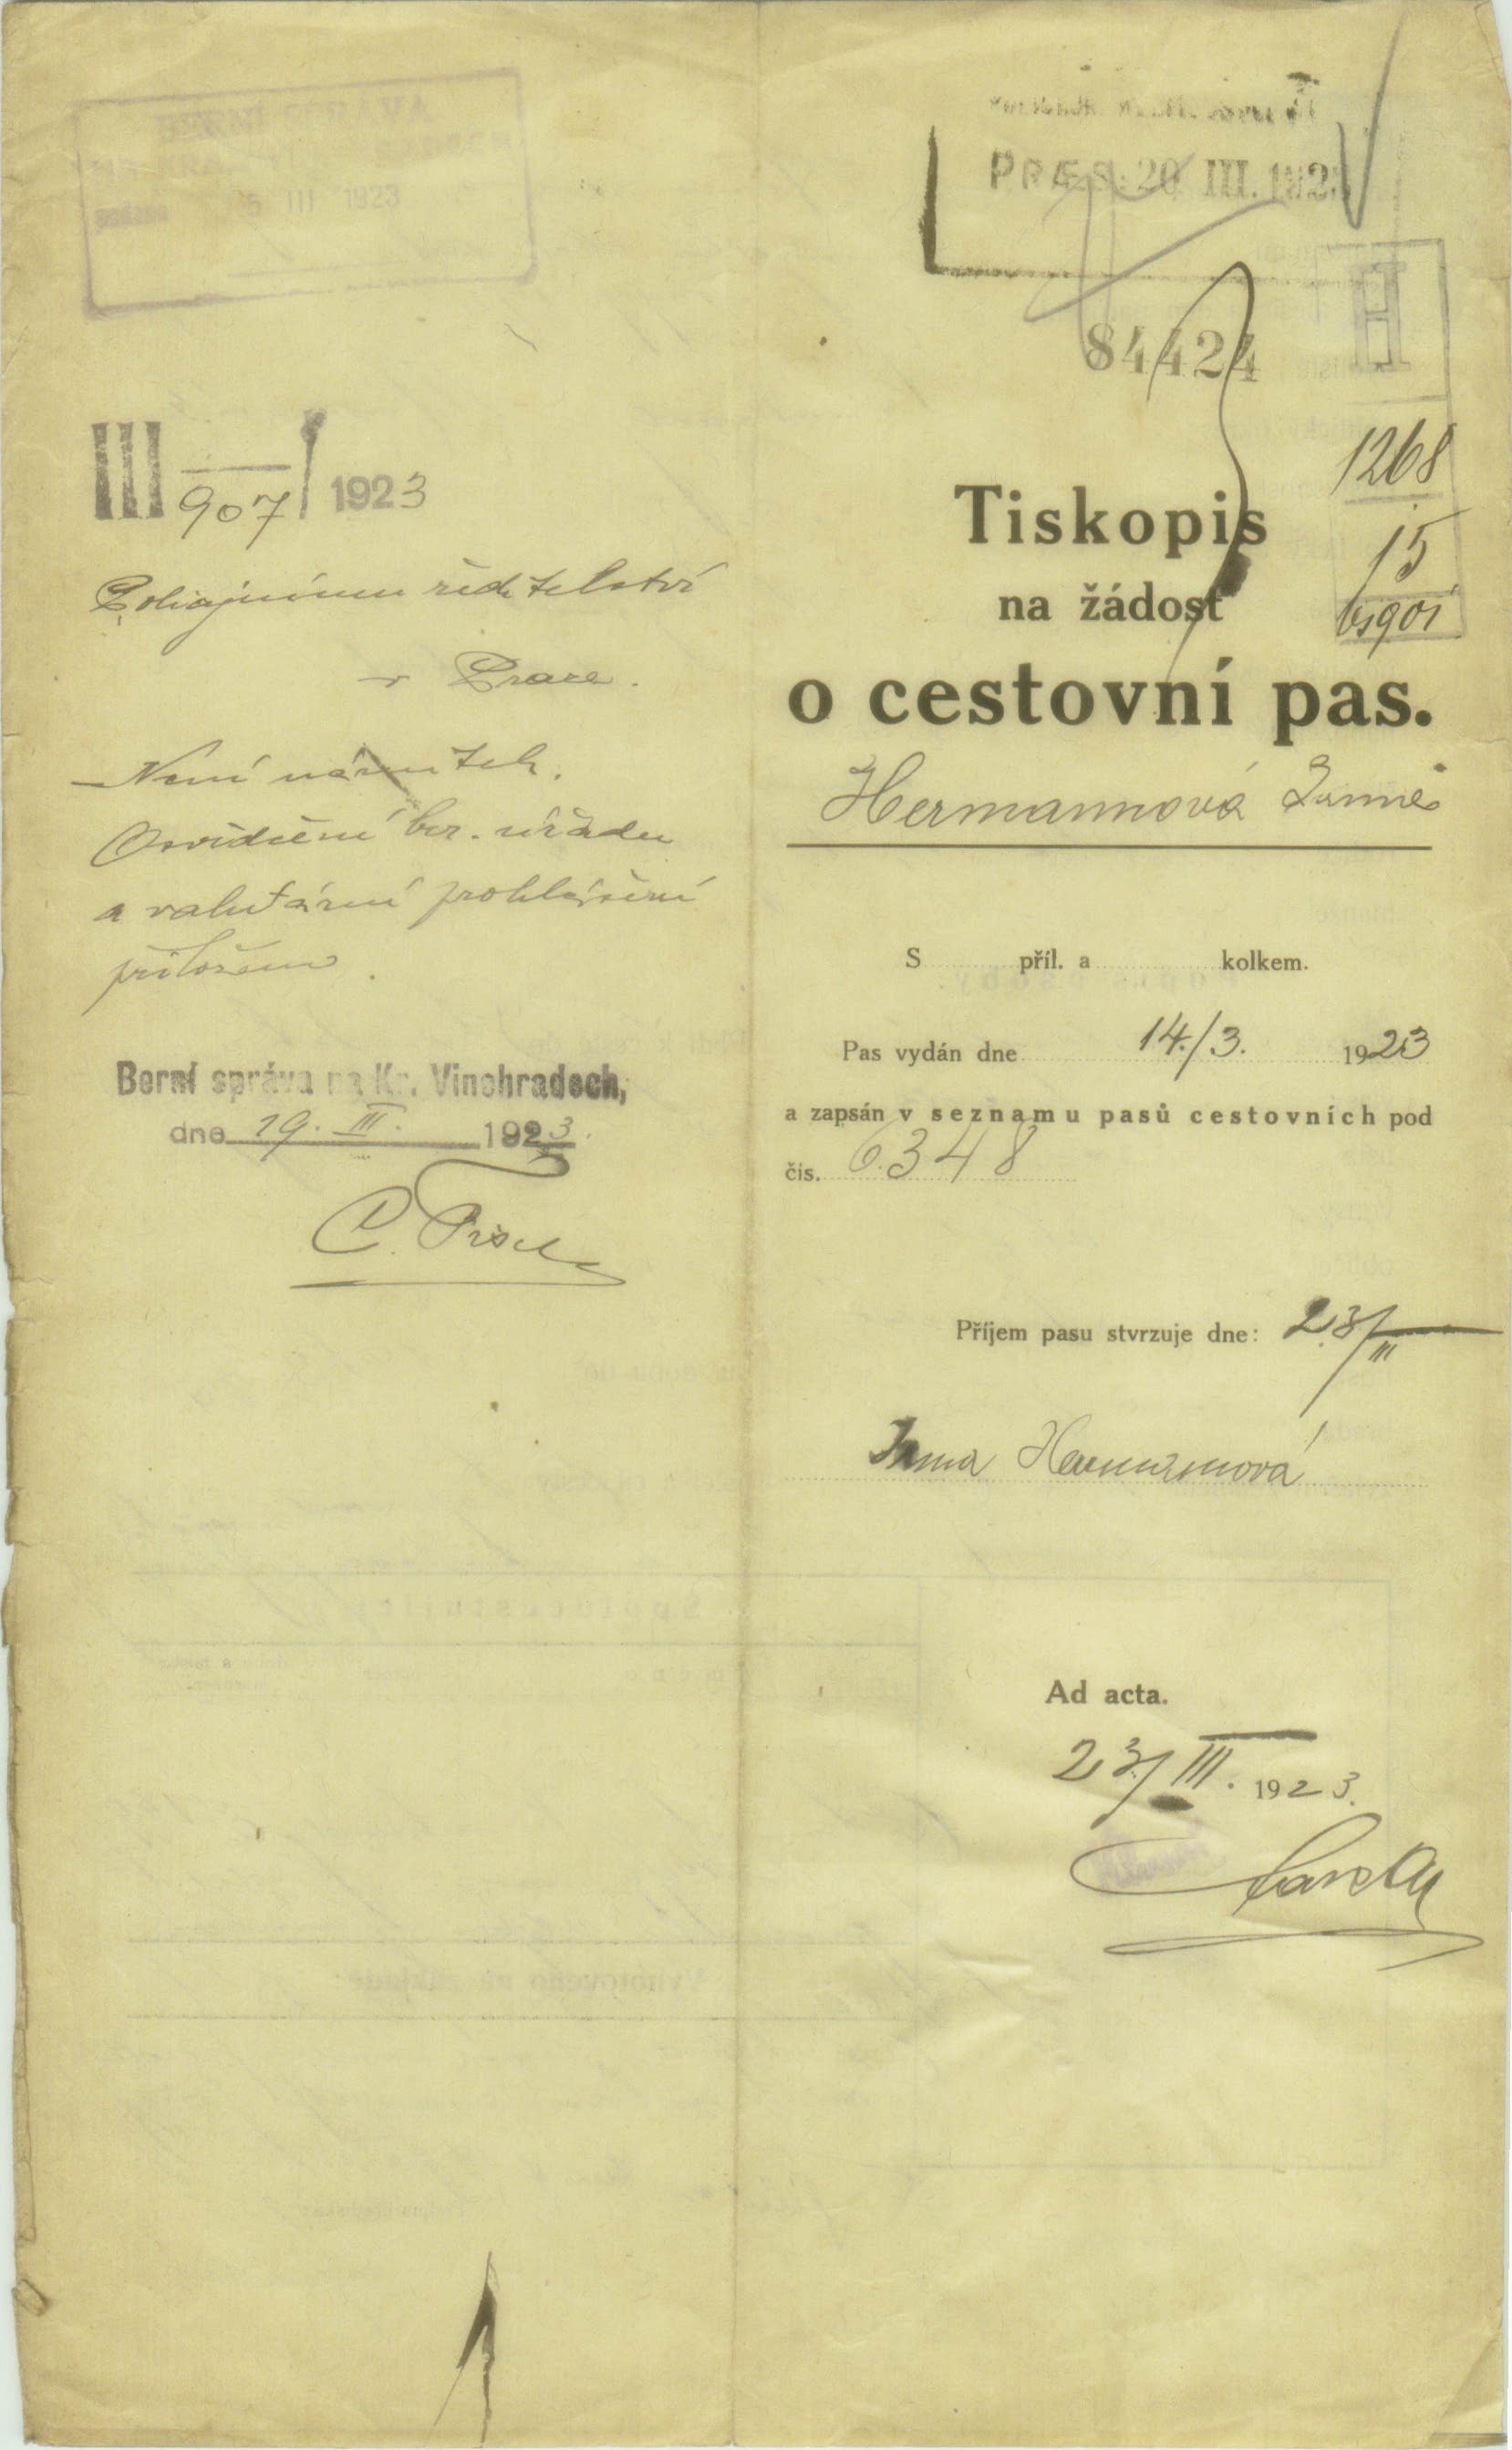 BERNÍ SPRÁVA
III 1923
III 907 / 1923
Policejnímu ředitelství
v Praze.
Není námitek.
Osvědčení ber. úřadu
a valutární prohlášení
přiloženo.
Berní správa na Kr. Vinohradech,
dne 19. III. 1923.
PRAES. 20 III. 1923
84424
H
1268
15
Tiskopis
na žádost
o cestovní pas.
Hermannová
S příl. a kolkem.
Pas vydán dne 14./3. 1923
a zapsán v seznamu pasů cestovních pod
čís. 6348
Příjem pasu stvrzuje dne: 23/III
Irma Hermannová
Ad acta.
23/III. 1923.